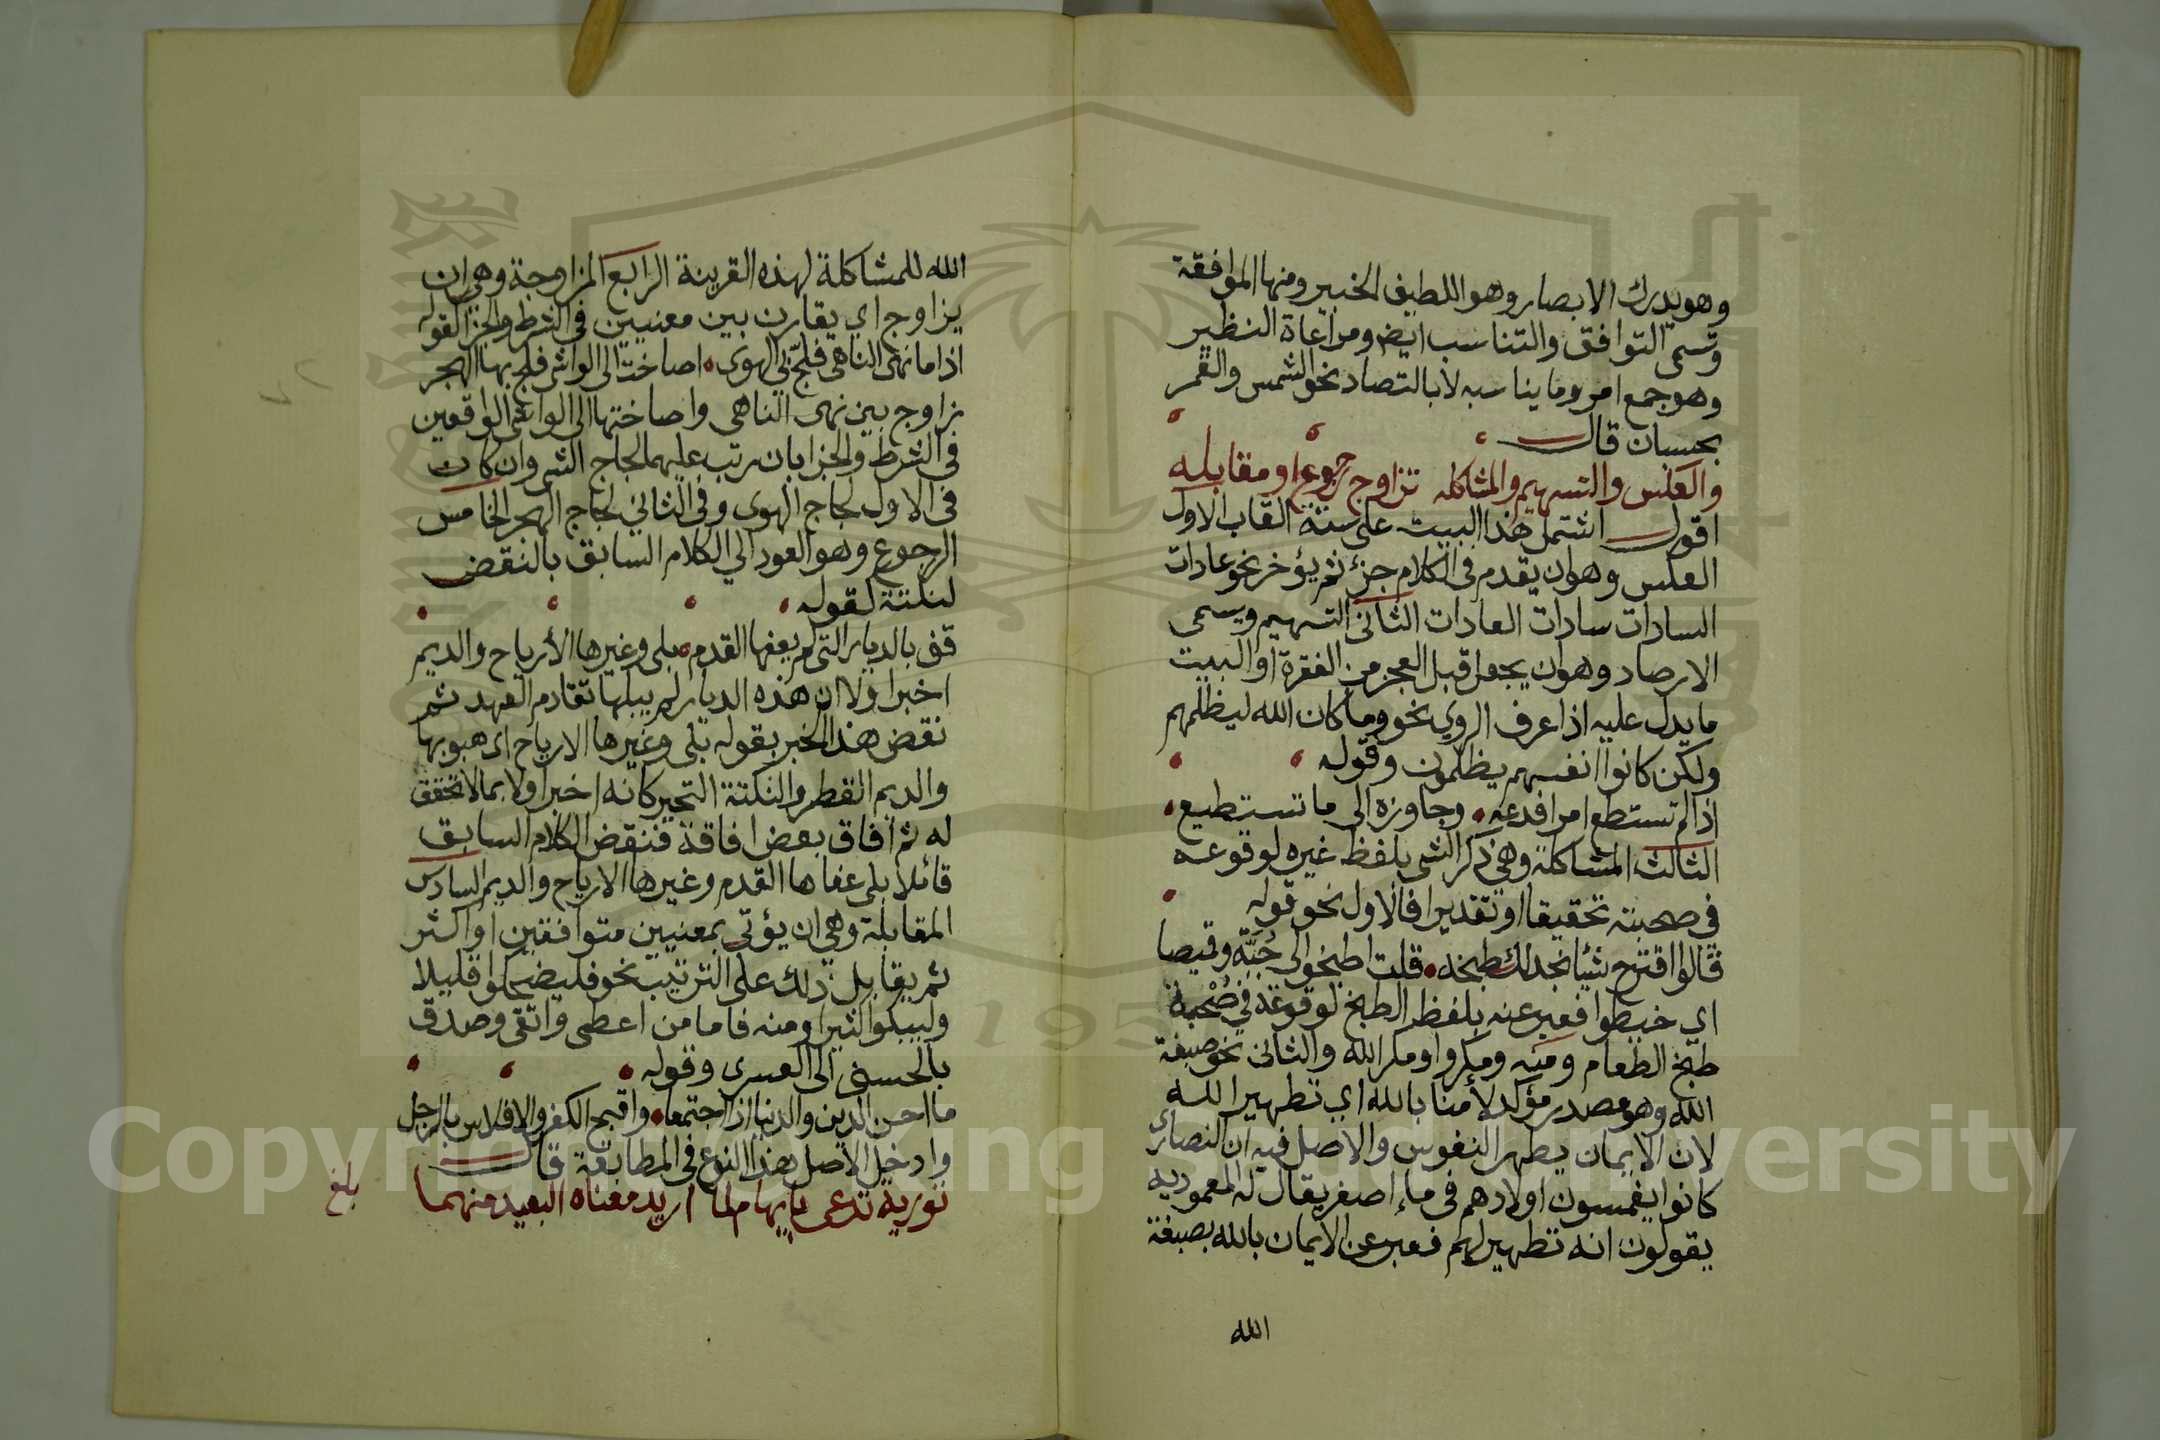 وهو يدرك الابصار وهو اللطيف الخبير ومنها الموافقة
وتسمى التوافق والتناسب ايض ومراعاة النظير
وهو جمع امر وما يناسبه لا بالتصاد نحو الشمس والقمر
بحسبان قال
والعكس والتسهيم والمشاكله تزاوج رجوع او مقابله
اقول اشتمل هذا البيت على ستة القاب الاول
العكس وهو ان يقدم في الكلام جزء ثم يؤخر نحو عادات
السادات سادات العادات الثاني التسهيم ويسمى
الارصاد وهو ان يجعل قبل العجز من الفقرة او البيت
ما يدل عليه اذا عرف الروي نحو وما كان الله ليظلمهم
ولكن كانوا انفسهم يظلمون وقوله
اذا لم تستطع امرا فدعه وجاوزه الى ما تستطيع
الثالث المشاكلة وهي ذكر الشي بلفظ غيره لوقوعه
في صحبته تحقيقا او تقديرا فالاول نحو قوله
قالوا اقترح شيئا نجد لك طبخه قلت اطبخوا لي جُبَّة وقميصا
اي خيطوا فعبر عنه بلفظ الطبخ لوقوعه في صُحْبة
طبخ الطعام ومنه ومكروا ومكر الله والثاني نحو صبغة
الله وهو مصدر مؤكد لأمنا بالله اي تطهير الله
لان الايمان يطهر النفوس والاصل فيه ان النصارى
كانوا يغمسون اولادهم في ماء اصفر يقال له المعموديه
يقولون انه تطهير لهم فعبر عن الايمان بالله بصبغة
الله
الله للمشاكلة لهذه القرينة الرابع المزاوجة وهي ان
يزاوج اي يقارن بين معنيين في الشرط والجزا لقوله
اذا ما نهى الناهي فلجّ بي الهوى اصاخت الى الواشي فلج بها الهجر
زاوج بين نهى الناهي واصاختها الى الواشي الواقعين
في الشرط والجزا بان رتب عليهما لجاج الشي وان كان
في الاول لجاج الهوى وفي الثاني لجاج الهجر الخامس
الرجوع وهو العود الي الكلام السابق بالنقض
لنكتة لقوله
قف بالديار التي لم يعفها القدم بلى وغيرها الأرياح والديم
اخبر اولا ان هذه الديار لم يبلها تقادم العهد ثم
نقض هذا الخبر بقوله بلى وغيرها الارياح اي هبوبها
والديم القطر والنكتة التحير كانه اخبر اولا بما لا تحقق
له ثم افاق بعض افاقة فنقض الكلام السابق
قائلا بلى عفاها القدم وغيرها الارياح والديم السادس
المقابلة وهي ان يؤتى بمعنيين متوافقين او اكثر
ثم يقابل ذلك على الترتيب نحو فليضحكوا قليلا
وليبكوا كثيرا ومنه فاما من اعطى واتقى وصدق
بالحسنى الى العسرى وقوله
ما احسن الدين والدنيا اذا اجتمعا واقبح الكفر والافلاس بالرجل
وادخل الاصل هذا النوع في المطابقة قال
تورية تدعى بايهام لما اريد معناه البعيد منهما
بلغ
Copyright King Saud University